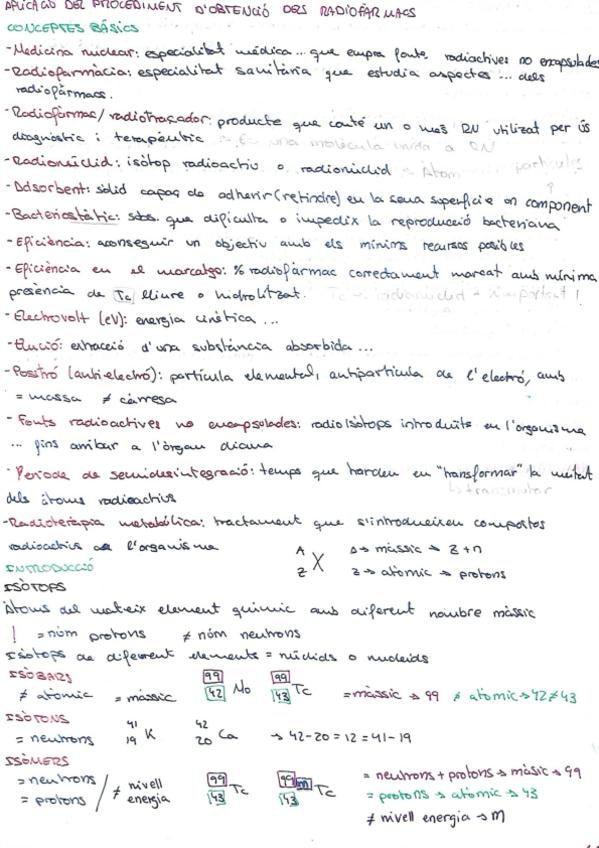 APLICACIÓ DEL PROCEDIMENT D'OBTENCIÓ DELS RADIOFÀRMACS
CONCEPTES BÀSICS
-Medicina nuclear: especialitat mèdica ... que empra fonts radiactives no encapsulades
-Radiofarmàcia: especialitat sanitària que estudia aspectes ... dels
radiofàrmacs.
-Radiofàrmac/radiotraçador: producte que conté un o més RN utilitzat per ús
diagnòstic i terapèutic → És una molècula unida a RN
-Radionúclid: isòtop radioactiu o radionúclid → Àtom partícules
-Adsorbent: sòlid capaç de adherir(retindre) en la seua superfície un component
-Bacteriostàtic: sbs. que dificulta o impedix la reproducció bacteriana
-Eficiència: aconseguir un objectiu amb els mínims recursos posibles
-Eficiència en el marcatge: % radiofàrmac correctament marcat amb mínima
presència de Tc lliure o hidrolitzat. Tc → radionúclid + important!
-Electrovolt (eV): energia cinètica ...
-Elució: extracció d'una substància absorbida ...
-Positró (anti-electró): partícula elemental, antipartícula de l'electró, amb
= massa ≠ càrrega
-Fonts radioactives no encapsulades: radioisòtops introduïts en l'organisme
... fins arribar a l'òrgan diana
-Període de semidesintegració: temps que tarden en "transformar" la meitat
dels àtoms radioactius ↳ transmutar
-Radioteràpia metabòlica: tractament que s'introdueixen compostos
radioactius a l'organisme
A Z X A → màssic → Z+n
Z → atòmic → protons
INTRODUCCIÓ
ISÒTOPS
Àtoms del mateix element químic amb diferent nombre màssic
! = núm protons ≠ núm neutrons
Isòtops de diferent elements = núclids o nucleids
ISÒBARS
≠ atòmic = màssic 99 42 Mo 99 43 Tc = màssic → 99 ≠ atòmic → 42 ≠ 43
ISÒTONS
= neutrons 41 19 K 42 20 Ca → 42-20 = 12 = 41-19
ISÒMERS
= neutrons
= protons / ≠ nivell energia 99 43 Tc 99m 43 Tc = neutrons + protons → màsic → 99
= protons → atòmic → 43
≠ nivell energia → m